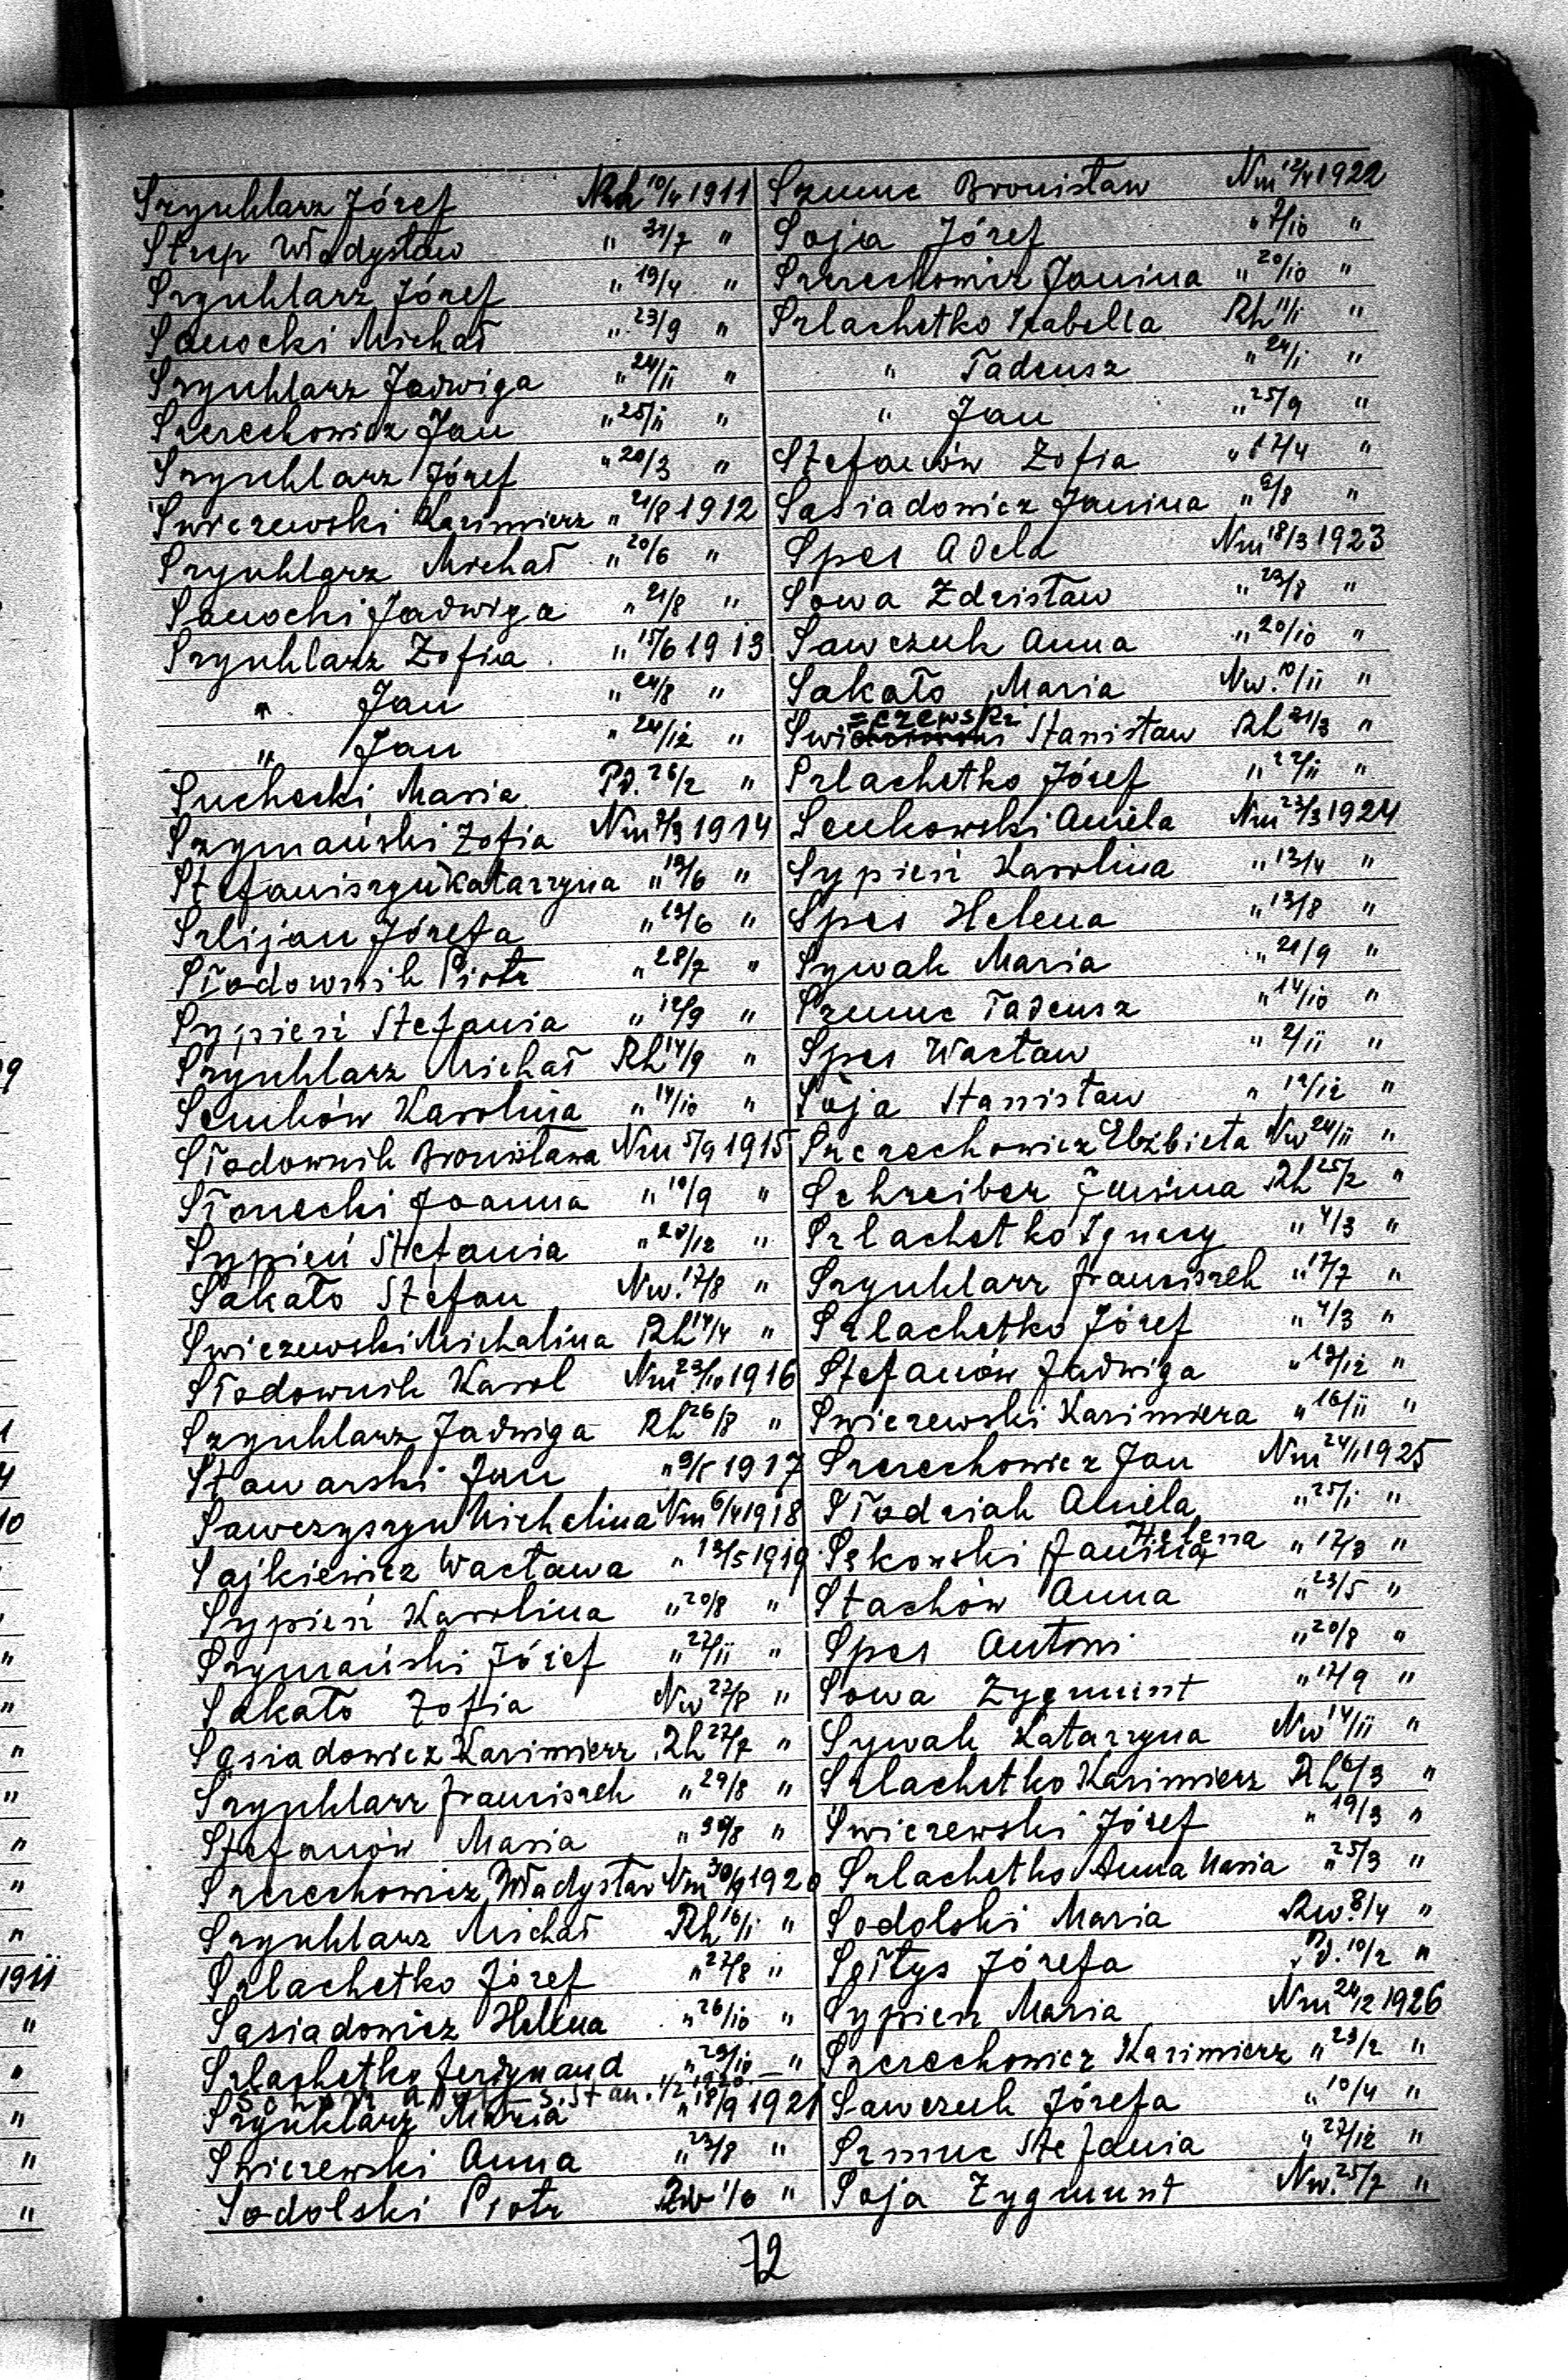 Szynklarz Józef Rh 10/4 1911
Strep Władysław " 31/7 "
Szynklarz Józef " 19/4 "
Sanocki Michał " 23/9 "
Szynklarz Jadwiga " 24/11 "
Szerechowicz Jan " 25/11 "
Szynklarz Józef " 20/3 "
Swiczewski Kazimierz " 21/8 1912
Szynklarz Michał " 20/6 "
Sanocki Jadwiga " 21/8 "
Szynklarz Zofia " 15/6 1913
" Jan " 24/8 "
" Jan " 24/12 "
Suchecki Maria Pd. 26/2 "
Szymański Zofia Nm 2/3 1914
Stefaniszyn Katarzyna " 19/6 "
Szlijan Józefa " 19/6 "
Słodownik Piotr " 28/7 "
Sypień Stefania " 12/9 "
Szynklarz Michał Rh 14/9 "
Senków Karolina " 14/10 "
Słodownik Bronisława Nm 5/9 1915
Słonecki Joanna " 10/9 "
Sypień Stefania " 20/12 "
Sakało Stefan Nw. 17/8 "
Swiczewski Michalina Rh 14/4 "
Słodownik Karol Nm 23/10 1916
Szynklarz Jadwiga Rh 26/8 "
Stawarski Jan " 9/5 1917
Sawczyszyn Michalina Nm 6/4 1918
Sajkiewicz Wacława " 13/5 1919
Sypień Karolina " 20/8 "
Szymański Józef " 27/11 "
Sakało Zofia Nw 27/8 "
Sąsiadowicz Kazimierz Rh 27/7 "
Szynklarz Franciszek " 29/8 "
Stefanów Maria " 30/8 "
Szerechowicz Władysław Nm 30/9 1920
Szynklarz Michał Rh 16/1 "
Szlachetko Józef " 27/8 "
Sąsiadowicz Helena " 26/10 "
Szlachetko Ferdynand " 29/10 "
S. Stan. 1/2 1920
Szynklarz Maria " 18/9 1921
Swiczewski Anna " 23/8 "
Sodolski Piotr Rw 1/6 "
Szmuc Bronisław Nm 12/4 1922
Soja Józef " 7/10 "
Szerechowicz Janina " 20/10 "
Szlachetko Izabella Rh 11/1 "
" Tadeusz " 24/1 "
" Jan " 25/9 "
Stefanów Zofia " 17/4 "
Sąsiadowicz Janina " 6/8 "
Spes Adela Nm 18/3 1923
Sowa Zdzisław " 23/8 "
Sawczuk Anna " 20/10 "
Sakało Maria Nw. 10/11 "
Swiczewski Stanisław Rh 21/3 "
Szlachetko Józef " 27/11 "
Senkowski Aniela Nm 23/3 1924
Sypień Karolina " 13/4 "
Spes Helena " 13/8 "
Sywak Maria " 21/9 "
Szmuc Tadeusz " 14/10 "
Spes Wacław " 2/11 "
Soja Stanisław " 12/12 "
Szerechowicz Elżbieta Nw 24/11 "
Schreiber Janina Rh 25/2 "
Szlachetko Ignacy " 4/3 "
Szynklarz Franciszek " 17/7 "
Szlachetko Józef " 4/3 "
Stefanów Jadwiga " 13/12 "
Swiczewski Kazimiera " 16/11 "
Szerechowicz Jan Nm 24/1 1925
Słodziak Aniela " 25/1 "
Sękowski Janina Helena " 17/3 "
Stachów Anna " 23/5 "
Spes Antoni " 20/8 "
Sowa Zygmunt " 17/9 "
Sywak Katarzyna Nw 14/11 "
Szlachetko Kazimierz Rh 6/3 "
Swiczewski Józef " 19/3 "
Szlachetko Anna Maria " 25/3 "
Sodolski Maria Rw. 8/4 "
Sołtys Józefa Pd. 10/2 "
Sypień Maria Nm 24/2 1926
Szerechowicz Kazimierz " 23/2 "
Sawczuk Józefa " 10/4 "
Szmuc Stefania " 27/12 "
Soja Zygmunt Nw. 25/7 "
72